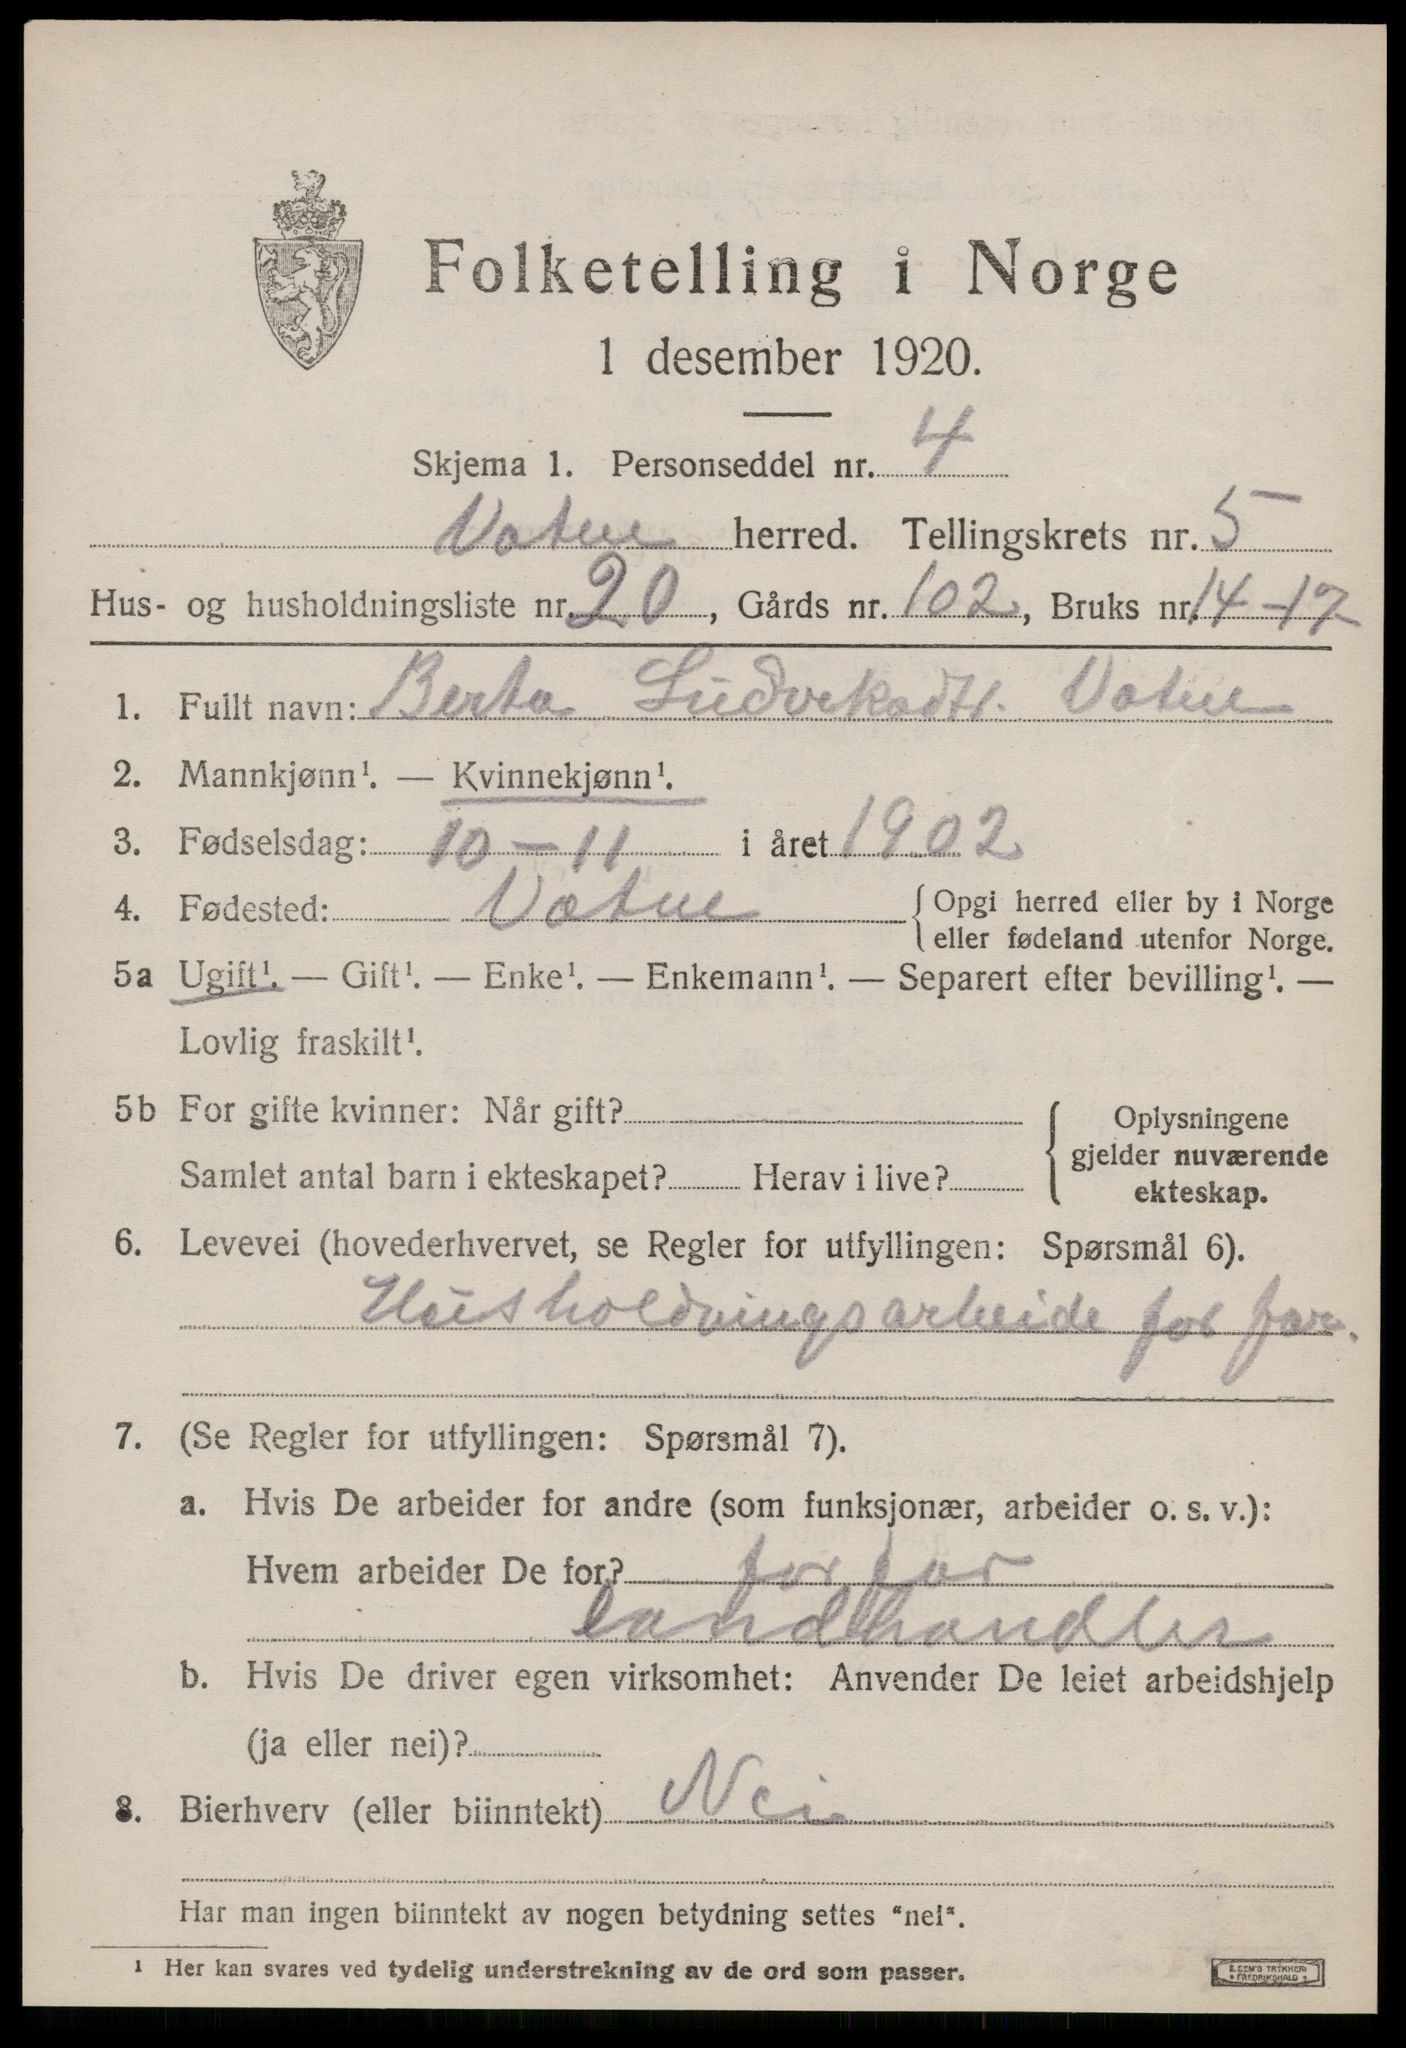 Folketelling i Norge
1 desember 1920.
Skjema 1. Personseddel nr. 4
Vatne herred. Tellingskrets nr. 5
Hus- og husholdningsliste nr. 20, Gårds nr. 102, Bruks nr. 14-17
1. Fullt navn: Berta Ludvekadtr. Vatne
2. Mannkjønn¹. — Kvinnekjønn¹.
3. Fødselsdag: 10-11 i året 1902
4. Fødested: Vatne { Opgi herred eller by i Norge
eller fødeland utenfor Norge.
5a Ugift¹. — Gift¹. — Enke¹. — Enkemann¹. — Separert efter bevilling¹. —
Lovlig fraskilt¹.
5b For gifte kvinner: Når gift?
Samlet antal barn i ekteskapet? Herav i live?
Oplysningene
gjelder nuværende
ekteskap.
6. Levevei (hovederhvervet, se Regler for utfyllingen: Spørsmål 6).
Husholdningsarbeide for far.
7. (Se Regler for utfyllingen: Spørsmål 7).
a. Hvis De arbeider for andre (som funksjonær, arbeider o. s. v.):
Hvem arbeider De for? for far
landhandler
b. Hvis De driver egen virksomhet: Anvender De leiet arbeidshjelp
(ja eller nei)?
8. Bierhverv (eller biinntekt) Nei
Har man ingen biinntekt av nogen betydning settes "nei".
¹ Her kan svares ved tydelig understrekning av de ord som passer.
E. SEM'S TRYKKERI
• FREDRIKSHALD •